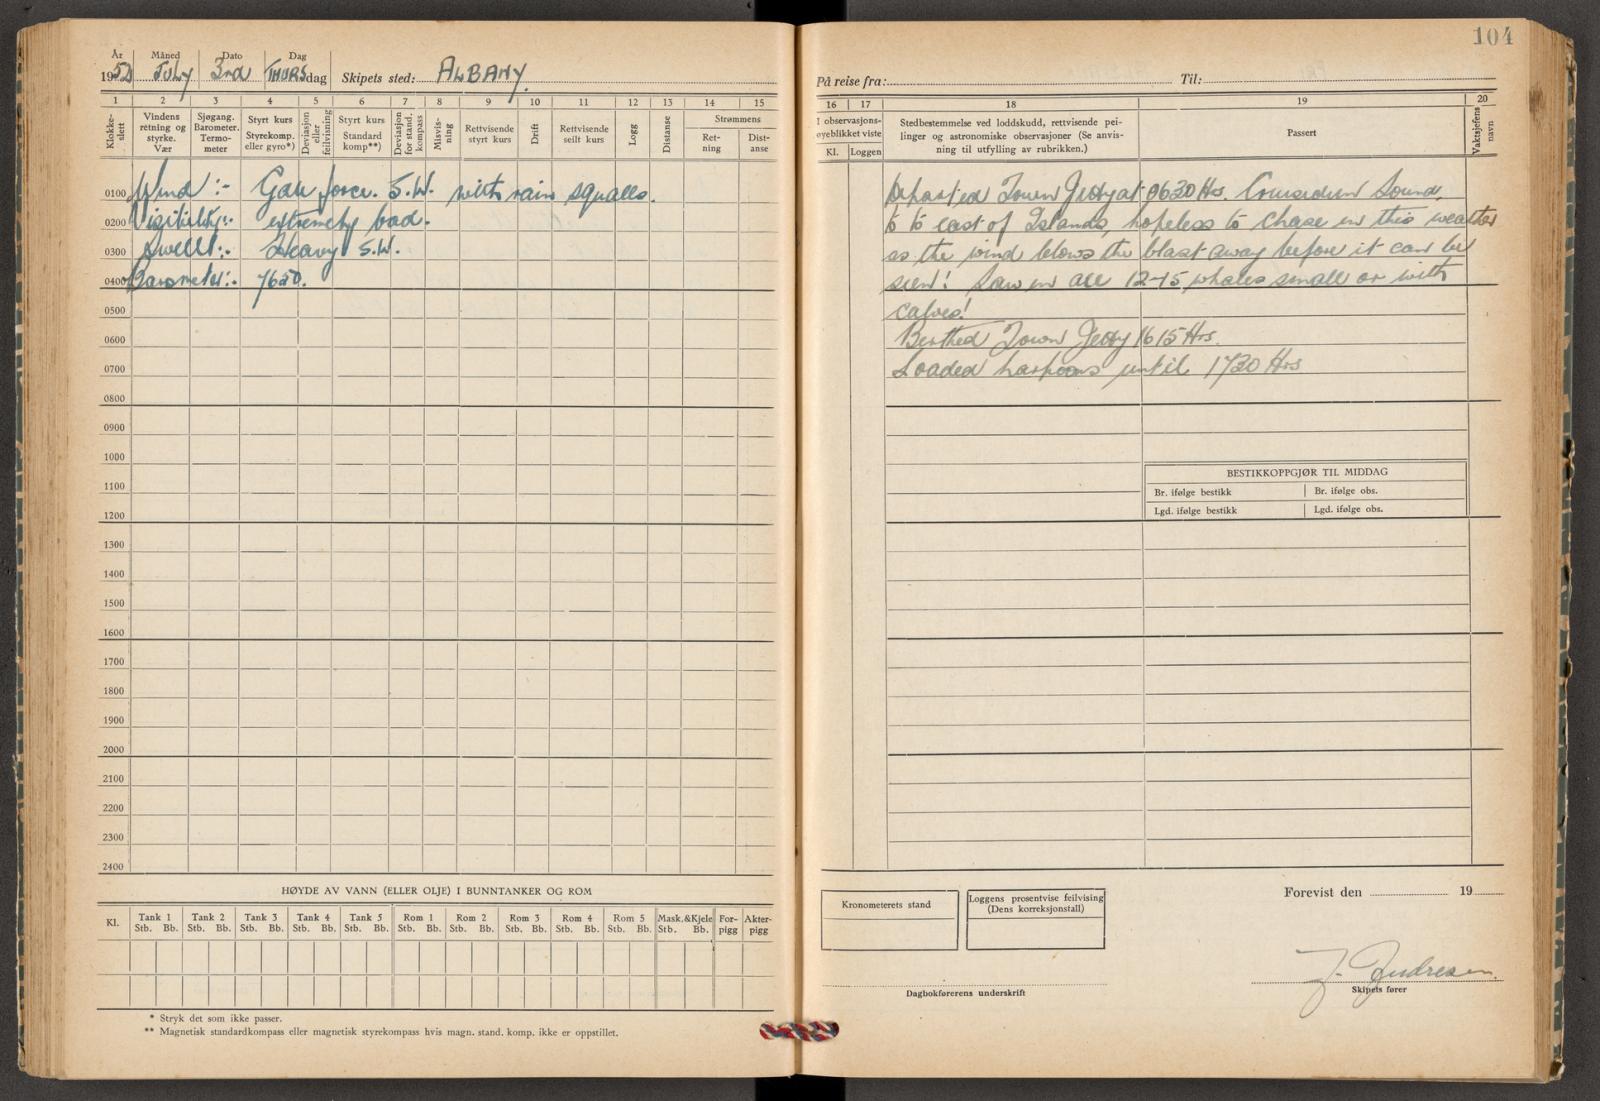 104
År Måned Dato Dag
1952 JULY 3rd THURSdag Skipets sted: ALBANY.
1 2 3 4 5 6 7 8 9 10 11 12 13 14 15
Klokkeslett
Vindens retning og styrke. Vær
Sjøgang. Barometer. Termometer
Styrt kurs Styrekomp. eller gyro*)
Deviasjon eller feilvisning
Styrt kurs Standard komp**)
Deviasjon for stand. kompass
Misvisning
Rettvisende styrt kurs
Drift
Rettvisende seilt kurs
Logg
Distanse
Strømmens
Retning
Distanse
0100 Wind :- Gale force. S.W. with rain squalls.
0200 Visibility:- extremely bad.
0300 Swell:- Heavy S.W.
0400 Barometer:- 7650.
0500
0600
0700
0800
0900
1000
1100
1200
1300
1400
1500
1600
1700
1800
1900
2000
2100
2200
2300
2400
HØYDE AV VANN (ELLER OLJE) I BUNNTANKER OG ROM
Kl. Tank 1 Tank 2 Tank 3 Tank 4 Tank 5 Rom 1 Rom 2 Rom 3 Rom 4 Rom 5 Mask.&Kjele Forpigg Akterpigg
Stb. Bb. Stb. Bb. Stb. Bb. Stb. Bb. Stb. Bb. Stb. Bb. Stb. Bb. Stb. Bb. Stb. Bb. Stb. Bb. Stb. Bb.
* Stryk det som ikke passer.
** Magnetisk standardkompass eller magnetisk styrekompass hvis magn. stand. komp. ikke er oppstillet.
På reise fra: Til:
16 17 18 19 20
I observasjonsøyeblikket viste
Kl. Loggen
Stedbestemmelse ved loddskudd, rettvisende peilinger og astronomiske observasjoner (Se anvisning til utfylling av rubrikken.)
Passert
Vaktsjefens navn
Departed Town Jetty at 0630 Hrs. Cruised in Sound,
& to east of Islands, hopeless to chase in this weather
as the wind blows the blast away before it can be
seen! Saw in all 12-15 whales small or with
calves!
Berthed Town Jetty 1615 Hrs.
Loaded harpoons until 1730 Hrs
BESTIKKOPPGJØR TIL MIDDAG
Br. ifølge bestikk Br. ifølge obs.
Lgd. ifølge bestikk Lgd. ifølge obs.
Kronometerets stand
Loggens prosentvise feilvising
(Dens korreksjonstall)
Forevist den 19
Dagbokførerens underskrift
J. Andresen.
Skipets fører